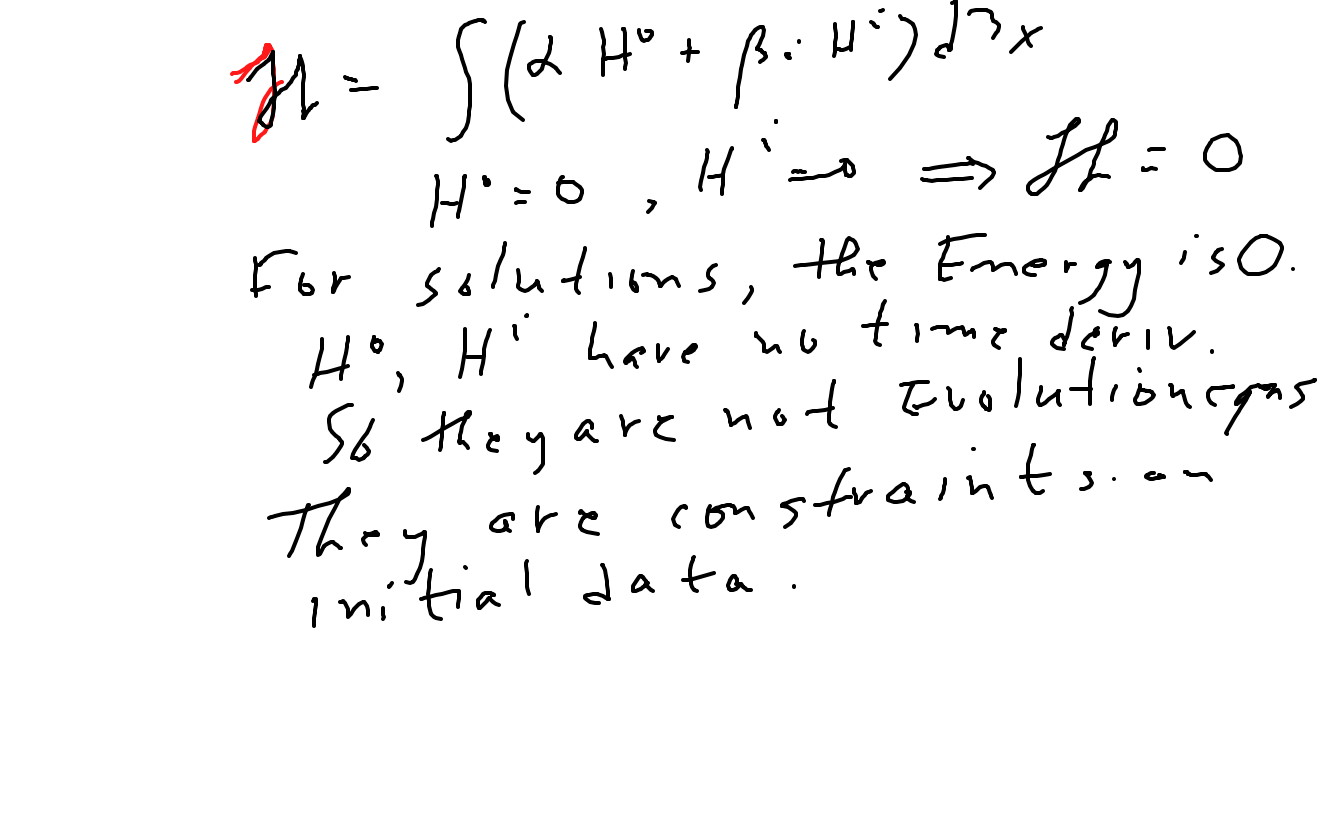 ℋ = ∫(α H⁰ + βᵢ Hⁱ) d³x
H⁰ = 0 , Hⁱ = 0 ⟹ ℋ = 0
For solutions, the Energy is 0.
H⁰, Hⁱ have no time deriv.
So they are not Evolution eqns
They are constraints. on
initial data.